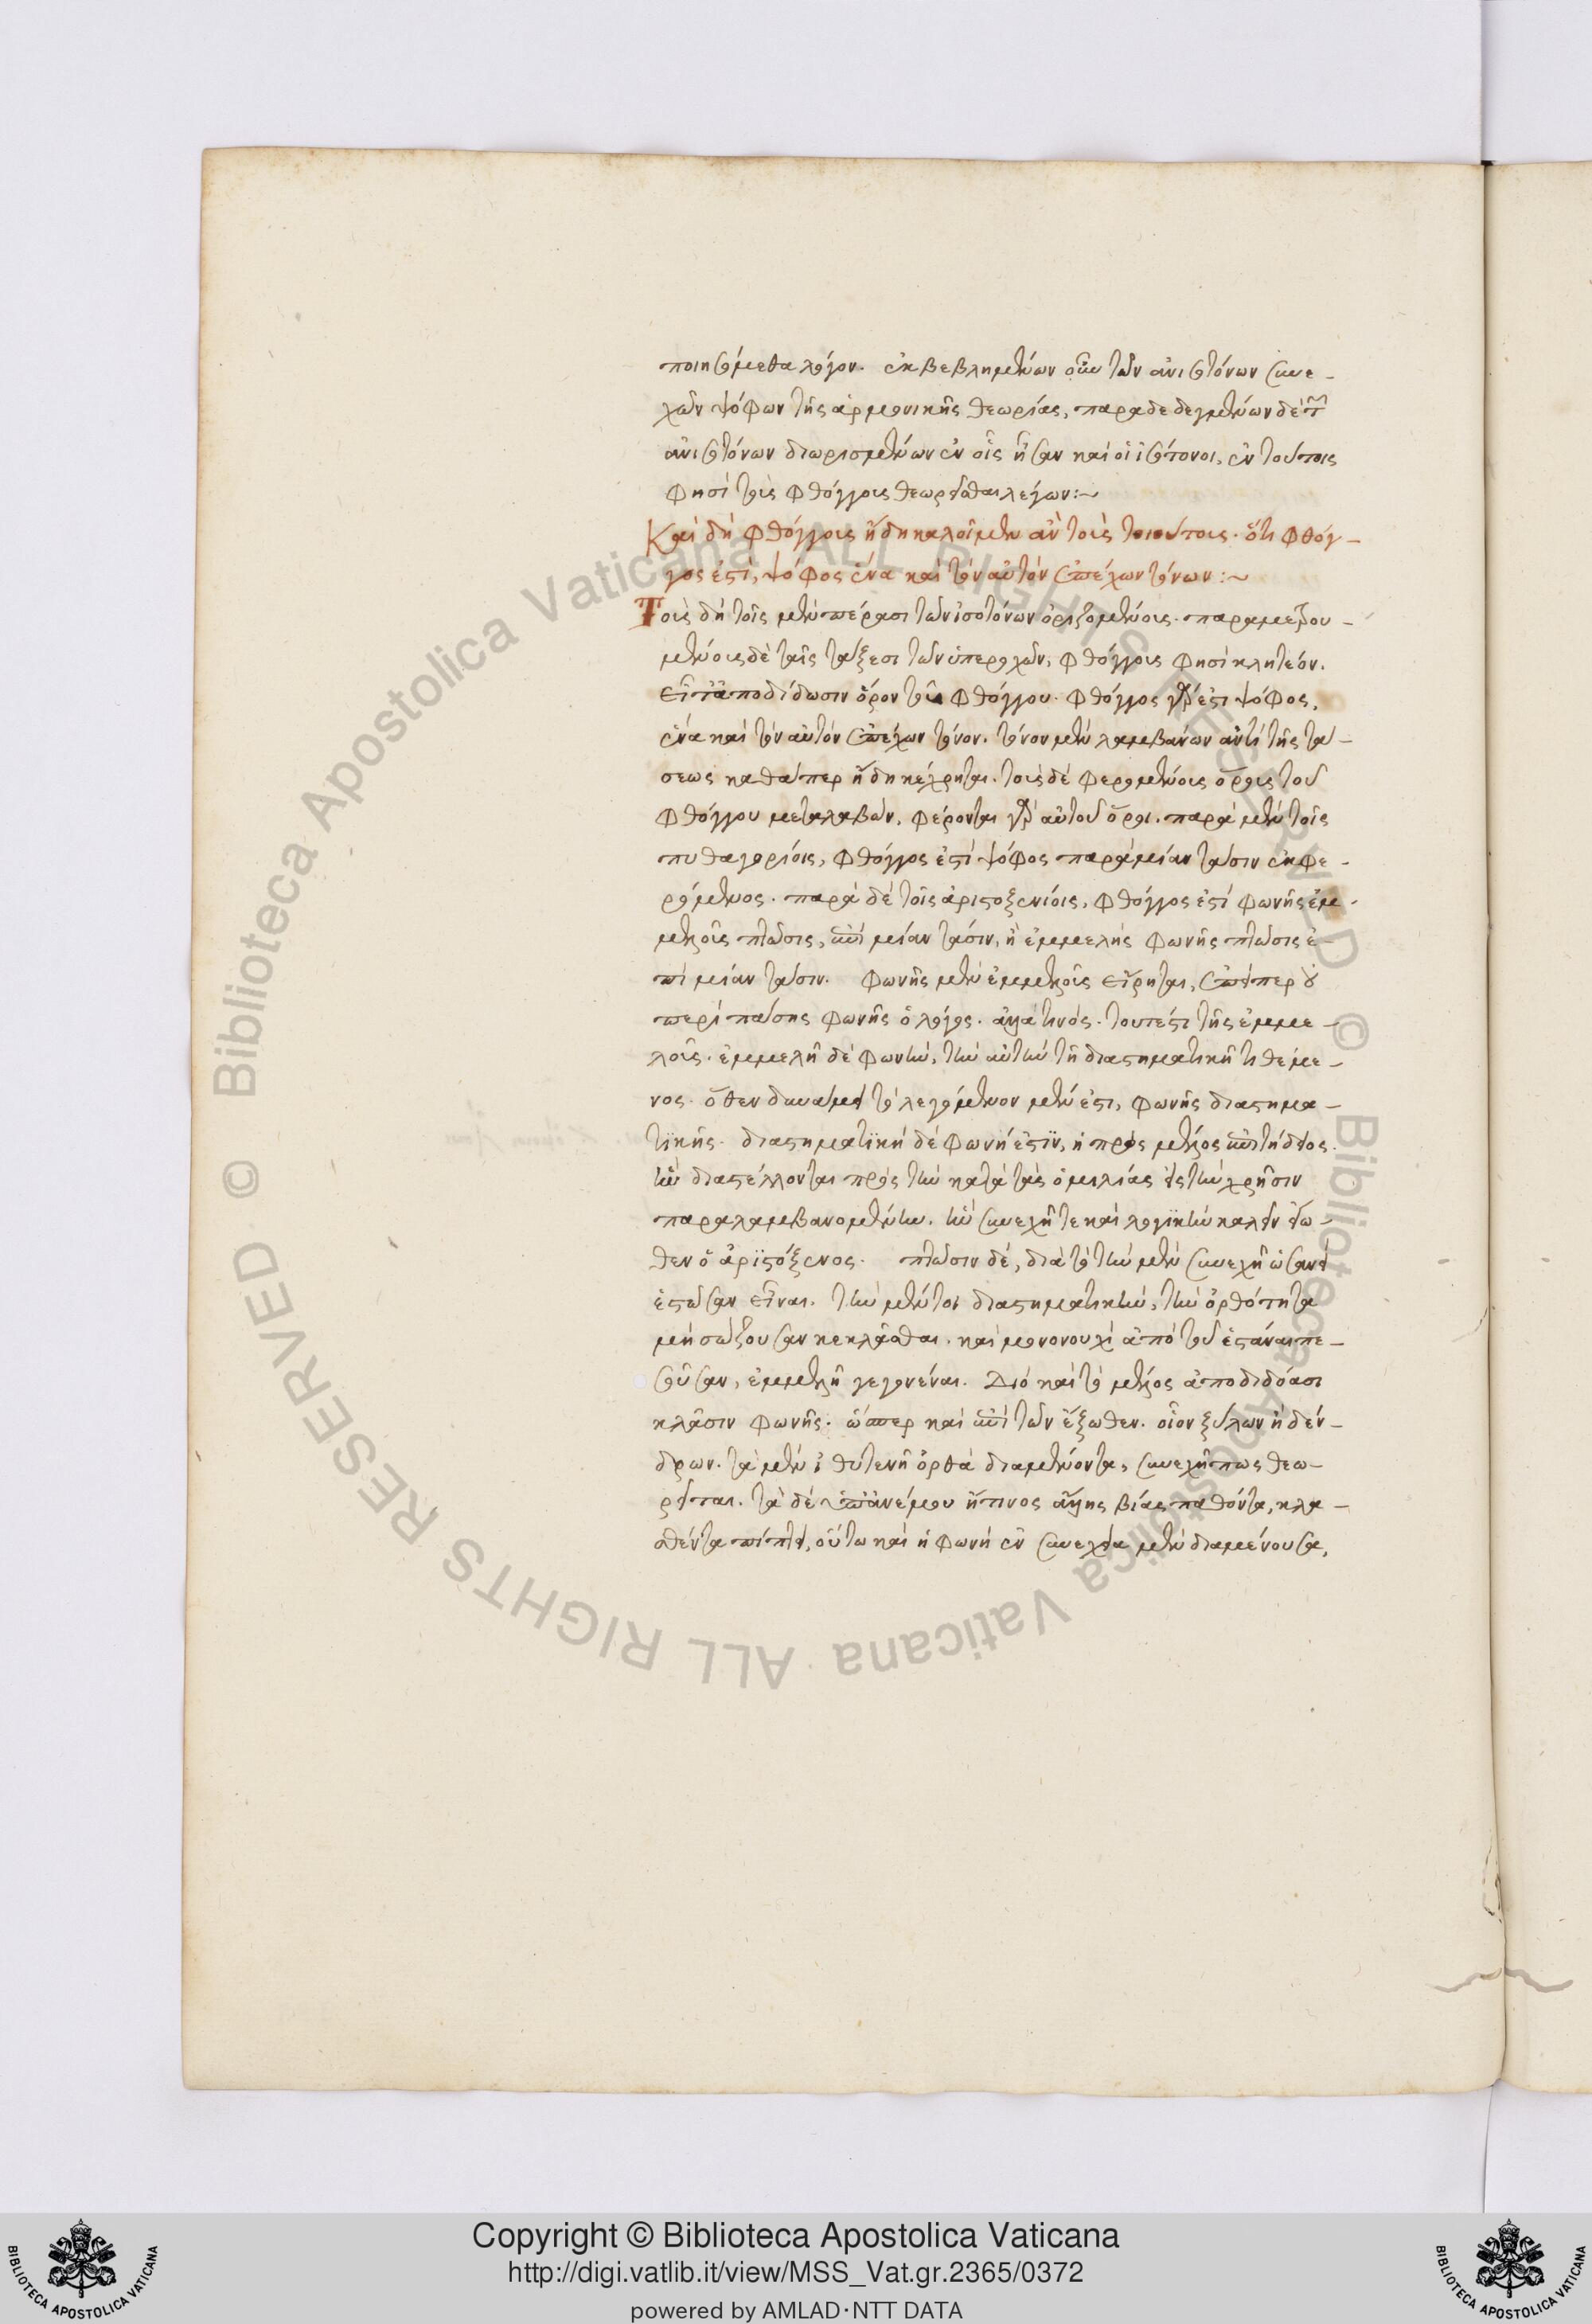 ποιησόμεθα λόγον. ἐκβεβλημένων οὖν τῶν ἀνισοτόνων συνε-
χῶν ψόφων τῆς ἁρμονικῆς θεωρίας, παραδεδεγμένων δὲ τῶν
ἀνισοτόνων διωρισμένων ἐν οἷς ἦσαν καὶ οἱ ἰσότονοι, ἐν τούτοις
φησὶ τοὺς φθόγγους θεωρεῖσθαι λέγων:~
Καὶ δὴ φθόγγους ἤδη καλοῖμεν ἂν τοὺς τοιούτους. ὅτι φθόγ-
γος ἐστὶ, ψόφος ἕνα καὶ τὸν αὐτὸν ἐπέχων τόνων:~
Τοὺς δὴ τοῖς μὲν πέρασι τῶν ἰσοτόνων ὁριζομένους. παραμετρου-
μένους δὲ ταῖς τάξεσι τῶν ὑπεροχῶν, φθόγγους φησὶ κλητέον.
εἶτα ἀποδίδωσιν ὅρον τοῦ φθόγγου. φθόγγος γάρ ἐστι ψόφος,
ἕνα καὶ τὸν αὐτὸν ἐπέχων τόνον. τόνον μὲν λαμβάνων ἀντὶ τῆς τά-
σεως καθάπερ ἤδη κέχρηται. τοὺς δὲ φερομένους ὅρους τοῦ
φθόγγου μεταλαβών. φέρονται γὰρ αὐτοῦ ὅροι. παρὰ μὲν τοῖς
πυθαγορίοις, φθόγγος ἐστὶ ψόφος παρὰ μίαν τάσιν ἐκφε-
ρόμενος. παρὰ δὲ τοῖς ἀριστοξενίοις, φθόγγος ἐστὶ φωνῆς ἐμ-
μελοῦς πτῶσις, ἐπὶ μίαν τάσιν, ἢ ἐμμελὴς φωνῆς πτῶσις ἐ-
πὶ μίαν τάσιν. φωνῆς μὲν ἐμμελοῦς εἴρηται, ἐπείπερ οὐ
περὶ πάσης φωνῆς ὁ λόγος. ἀλλά τινός. τουτέστι τῆς ἐμμε-
λοῦς. ἐμμελῆ δὲ φωνὴν, τὴν αὐτὴν τῇ διαστηματικῇ τιθέμε-
νος. ὅθεν δυνάμει τὸ λεγόμενον μὲν ἐστι, φωνῆς διαστημα-
τικῆς. διαστηματικὴ δὲ φωνή ἐστιν, ἡ πρὸς μέλος ἐπιτήδειος.
ἣν διαστέλλονται πρὸς τὴν κατὰ τὰς ὁμιλίας εἰς τὴν χρῆσιν
παραλαμβανομένην. ἣν συνεχῆ τε καὶ λογικὴν καλεῖν εἴω-
θεν ὁ ἀριστόξενος. πτῶσιν δέ, διὰ τὸ τὴν μὲν συνεχῆ ὡσανεὶ
ἑστῶσαν εἶναι. τὴν μέντοι διαστηματικὴν, τὴν ὀρθότητα
μὴ σώζουσαν κεκλᾶσθαι. καὶ μονονουχὶ ἀπὸ τοῦ ἑστάναι πε-
σοῦσαν, ἐμμελῆ γεγονέναι. Διὸ καὶ τὸ μέλος ἀποδιδόασι
κλᾶσιν φωνῆς. ὥσπερ καὶ ἐπὶ τῶν ἔξωθεν. οἷον ξύλων ἢ δέν-
δρων. τὰ μὲν ἰθυτενῆ ὀρθὰ διαμένοντα, συνεχῆ πως θεω-
ρεῖται. τὰ δὲ ὑπὸ ἀνέμου ἤ τινος ἄλλης βίας παθόντα, κλα-
σθέντα πίπτει, οὕτω καὶ ἡ φωνὴ ἐν συνεχεία μὲν διαμένουσα,
Copyright © Biblioteca Apostolica Vaticana
http://digi.vatlib.it/view/MSS_Vat.gr.2365/0372
powered by AMLAD·NTT DATA
BIBLIOTECA APOSTOLICA VATICANA
BIBLIOTECA APOSTOLICA VATICANA
© Biblioteca Apostolica Vaticana ALL RIGHTS RESERVED © Biblioteca Apostolica Vaticana ALL RIGHTS RESERVED